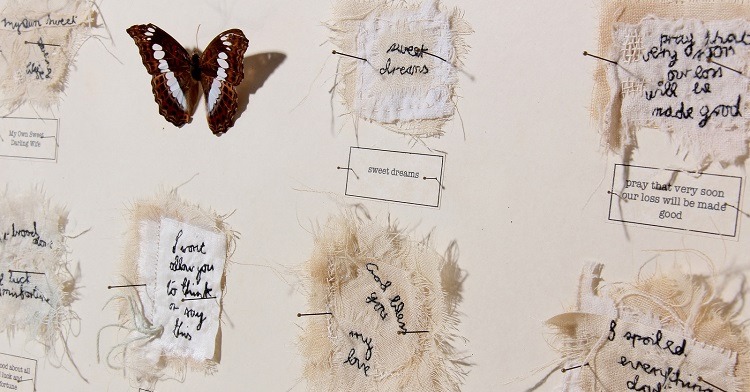 my own sweet
wife
My Own Sweet
Darling Wife
sweet
dreams
sweet dreams
pray that
very soon
our loss
will be
made good
pray that very soon
our loss will be made
good
luck
misfortune
ood about all
l luck and
fortune
I wont
allow you
to think
or say
this
God bless
you
my
love
I spoiled
everything